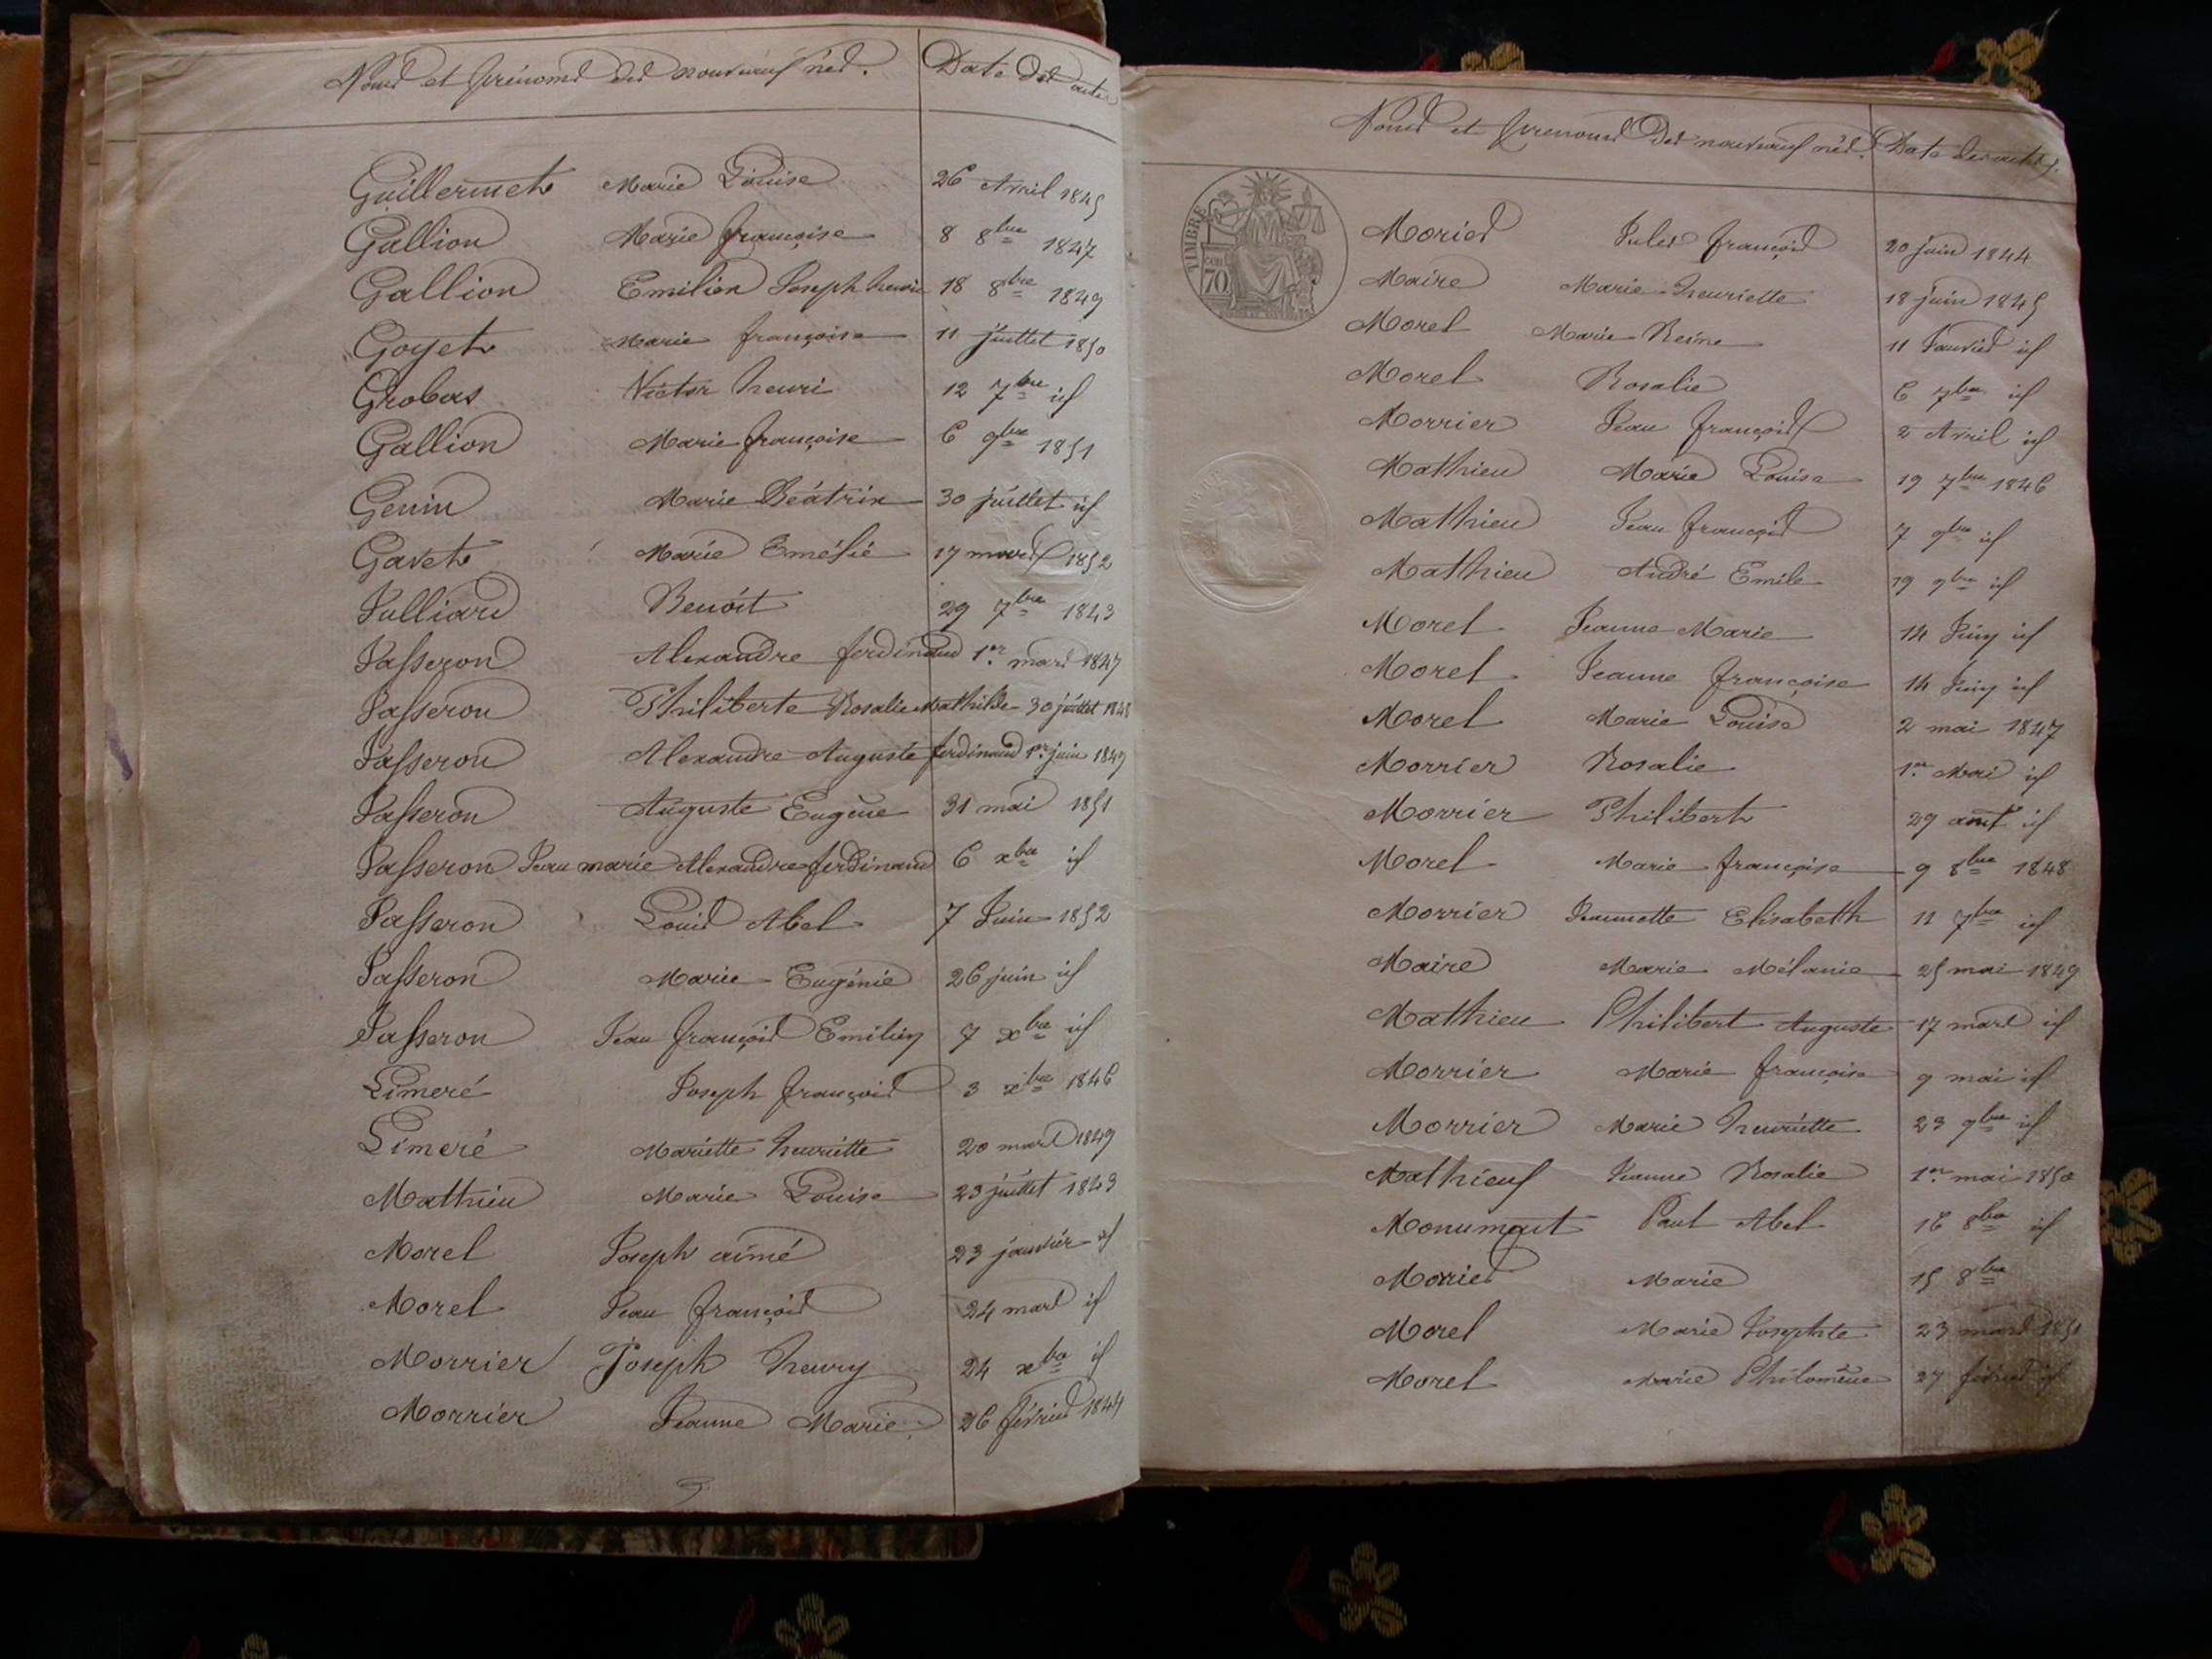 Noms et prénoms des nouveaux nés. Date des actes
Guillermet Marie Louise 26 Avril 1845
Gallion Marie françoise 8 8bre 1847
Gallion Emilien Joseph henri 18 8bre 1849
Goyet Marie françoise 11 juillet 1850
Grobas Victor henri 12 7bre id
Gallion Marie françoise 6 9bre 1851
Genin Marie Béatrix 30 juillet id
Gavet Marie 17 mars 1852
Julliard Benoit 29 7bre 1843
Jasseron Alexandre ferdinand 1er mars 1847
Jasseron Philiberte Rosalie Mathilde 30 juillet 1848
Jasseron Alexandre Auguste ferdinand 1er juin 1849
Jasseron Auguste Eugène 31 mai 1851
Jasseron Jean marie Alexandre ferdinand 6 xbre id
Jasseron Louis Abel 7 Juin 1852
Jasseron Marie Eugénie 26 juin id
Jasseron Jean françois Emilien 7 xbre id
Limeré Joseph françois 3 xbre 1846
Limeré Mariette henriette 20 mars 1849
Mathieu Marie Louise 23 juillet 1843
Morel Joseph aimé 23 janvier id
Morel Jean françois 24 mars id
Morrier Joseph henry 24 xbre id
Morrier Jeanne Marie 26 février 1844
Noms et prenoms des nouveaux nés. Date des actes.
TIMBRE
70
Morier Jules françois 20 juin 1844
Maire Marie henriette 18 juin 1845
Morel Marie Reine 11 Janvier id
Morel Rosalie 6 7bre id
Morrier Jean françois 2 Avril id
Mathieu Marie Louise 19 7bre 1846
Mathieu Jean françois 7 9bre id
Mathieu André Emile 19 9bre id
Morel Jeanne Marie 14 Juin id
Morel Jeanne françoise 14 Juin id
Morel Marie Louise 2 mai 1847
Morrier Rosalie 1er Mai id
Morrier Philibert 29 aout id
Morel Marie françoise 9 8bre 1848
Morrier Jeannette Elisabeth 11 7bre id
Maire Marie Mélanie 25 mai 1849
Mathieu Philibert Auguste 17 mars id
Morrier Marie françoise 9 mai id
Morrier Marie henriette 23 9bre id
Mathieux Jeanne Rosalie 1er mai 1850
Paul Abel 16 8bre id
Morier Marie 15 8bre
Morel Marie Josephte 23 mars 1851
Morel Marie Philomène 27 février id